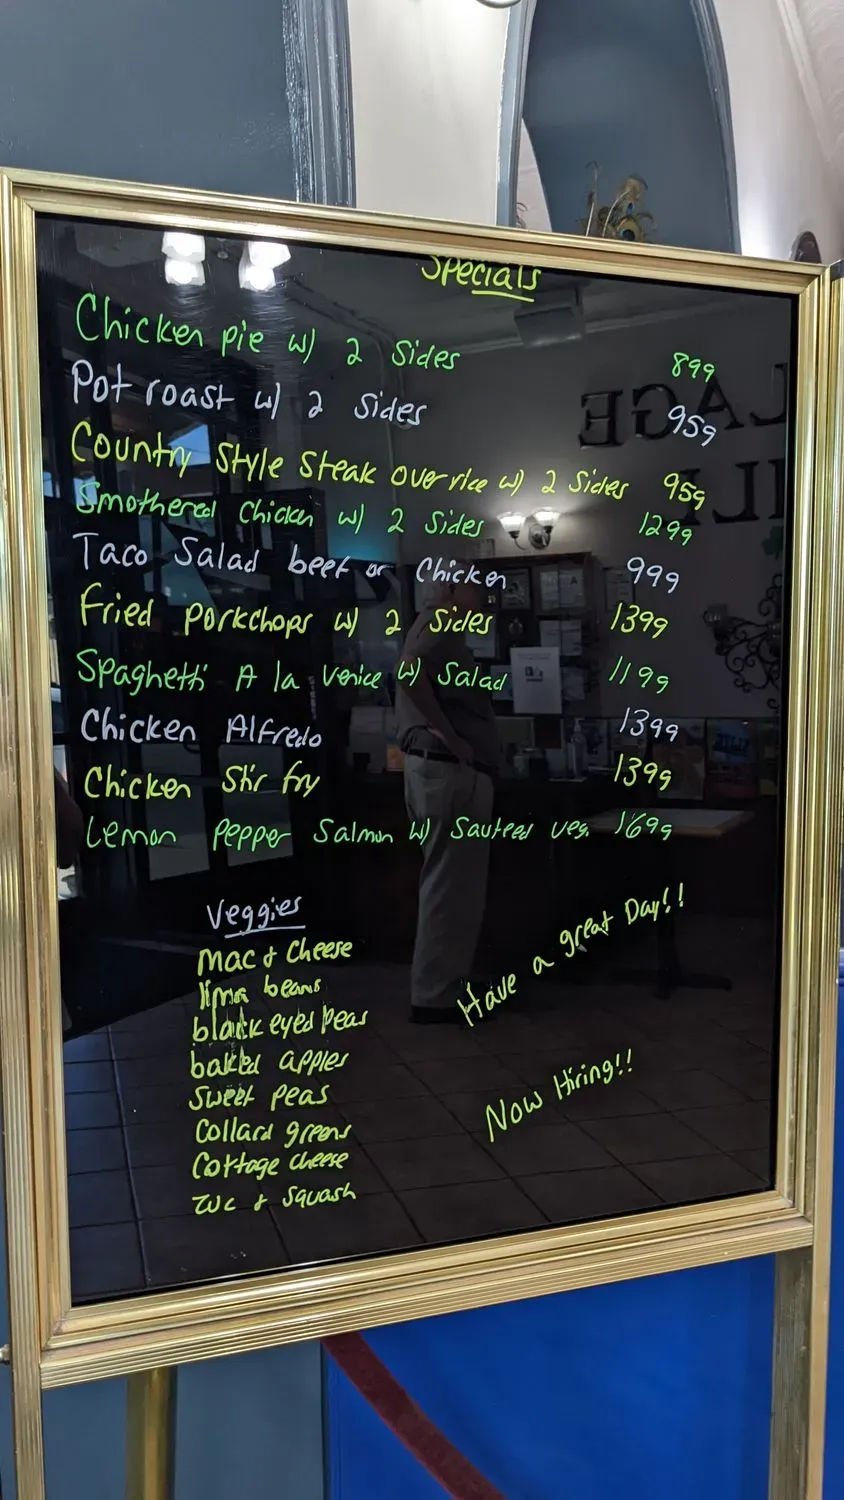 Specials
Chicken pie w/ 2 Sides 899
Pot roast w/ 2 Sides 959
Country Style Steak over rice w/ 2 Sides 959
Smothered Chicken w/ 2 Sides 1299
Taco Salad beef or Chicken 999
Fried porkchops w/ 2 Sides 1399
Spaghetti A la Venice w/ Salad 1199
Chicken Alfredo 1399
Chicken Stir fry 1399
Lemon Pepper Salmon w/ Sauteed veg. 1699
Veggies
Mac & Cheese
lima beans
black eyed Peas
baked apples
Sweet peas
Collard greens
Cottage cheese
zuc & Squash
Have a great Day!!
Now Hiring!!